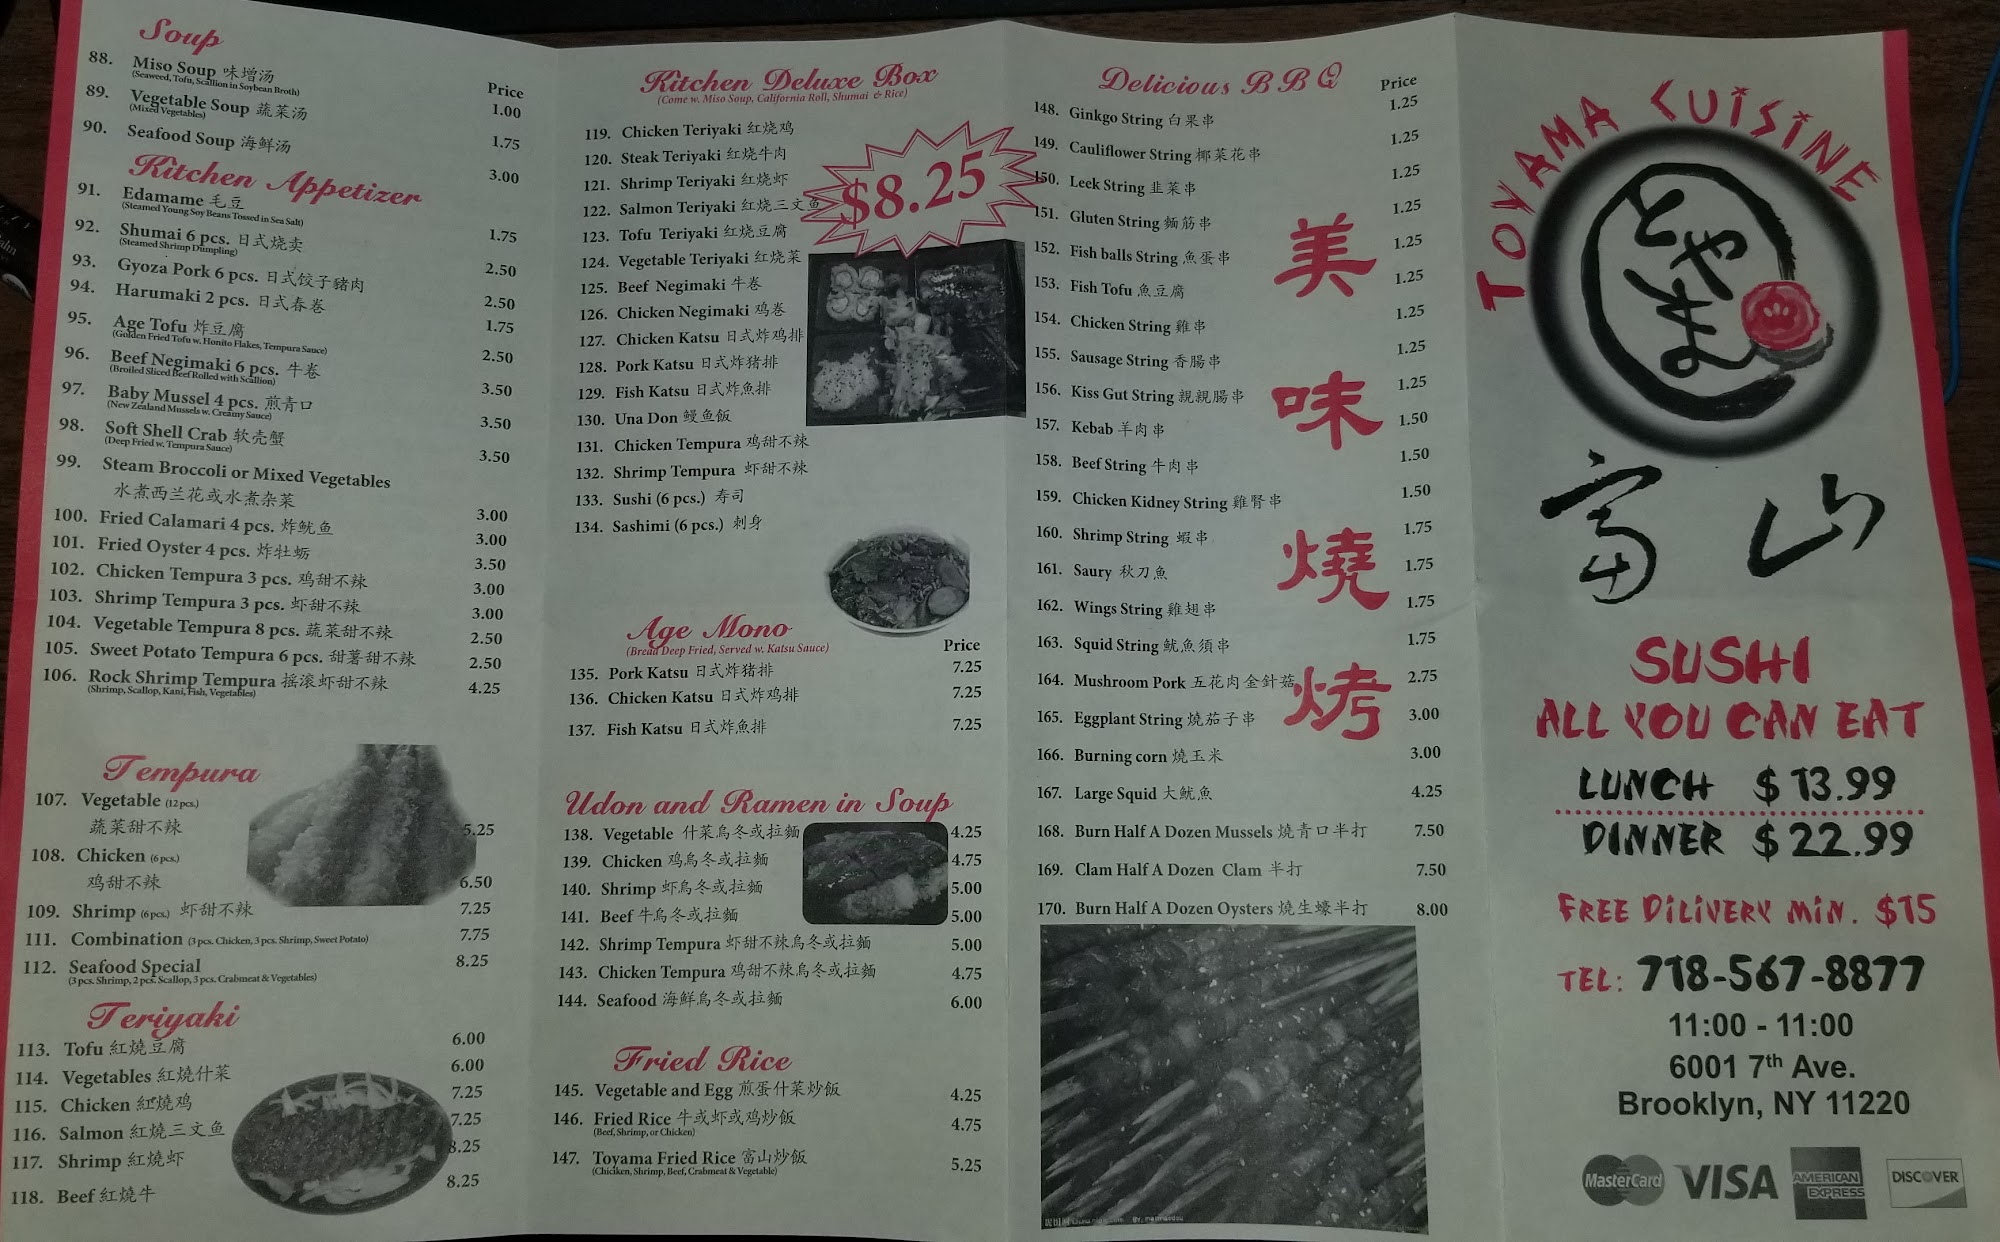 Soup
Price
88. Miso Soup 味增汤 1.00
(Seaweed, Tofu, Scallion in Soybean Broth)
89. Vegetable Soup 蔬菜汤 1.75
(Mixed Vegetables)
90. Seafood Soup 海鲜汤 3.00
Kitchen Appetizer
91. Edamame 毛豆 1.75
(Steamed Young Soy Beans Tossed in Sea Salt)
92. Shumai 6 pcs. 日式烧卖 2.50
(Steamed Shrimp Dumpling)
93. Gyoza Pork 6 pcs. 日式饺子豬肉 2.50
94. Harumaki 2 pcs. 日式春卷 1.75
95. Age Tofu 炸豆腐 2.50
(Golden Fried Tofu w. Honito Flakes, Tempura Sauce)
96. Beef Negimaki 6 pcs. 牛卷 3.50
(Broiled Sliced Beef Rolled with Scallion)
97. Baby Mussel 4 pcs. 煎青口 3.50
(New Zealand Mussels w. Creamy Sauce)
98. Soft Shell Crab 软壳蟹 3.50
(Deep Fried w. Tempura Sauce)
99. Steam Broccoli or Mixed Vegetables
水煮西兰花或水煮杂菜 3.00
100. Fried Calamari 4 pcs. 炸鱿鱼 3.00
101. Fried Oyster 4 pcs. 炸牡蛎 3.50
102. Chicken Tempura 3 pcs. 鸡甜不辣 3.00
103. Shrimp Tempura 3 pcs. 虾甜不辣 3.00
104. Vegetable Tempura 8 pcs. 蔬菜甜不辣 2.50
105. Sweet Potato Tempura 6 pcs. 甜薯甜不辣 2.50
106. Rock Shrimp Tempura 摇滚虾甜不辣 4.25
(Shrimp, Scallop, Kani, Fish, Vegetables)
Tempura
107. Vegetable (12 pcs.)
蔬菜甜不辣 5.25
108. Chicken (6 pcs.)
鸡甜不辣 6.50
109. Shrimp (6 pcs.) 虾甜不辣 7.25
111. Combination (3 pcs. Chicken, 3 pcs. Shrimp, Sweet Potato) 7.75
112. Seafood Special 8.25
(3 pcs. Shrimp, 2 pcs. Scallop, 3 pcs. Crabmeat & Vegetables)
Teriyaki
113. Tofu 紅燒豆腐 6.00
114. Vegetables 紅燒什菜 6.00
115. Chicken 紅燒鸡 7.25
116. Salmon 紅燒三文鱼 7.25
117. Shrimp 紅燒虾 8.25
118. Beef 紅燒牛 8.25
Kitchen Deluxe Box
(Come w. Miso Soup, California Roll, Shumai & Rice)
$8.25
119. Chicken Teriyaki 红烧鸡
120. Steak Teriyaki 红烧牛肉
121. Shrimp Teriyaki 红烧虾
122. Salmon Teriyaki 红烧三文鱼
123. Tofu Teriyaki 红烧豆腐
124. Vegetable Teriyaki 红烧菜
125. Beef Negimaki 牛卷
126. Chicken Negimaki 鸡卷
127. Chicken Katsu 日式炸鸡排
128. Pork Katsu 日式炸猪排
129. Fish Katsu 日式炸魚排
130. Una Don 鳗鱼飯
131. Chicken Tempura 鸡甜不辣
132. Shrimp Tempura 虾甜不辣
133. Sushi (6 pcs.) 寿司
134. Sashimi (6 pcs.) 刺身
Age Mono
(Bread Deep Fried, Served w. Katsu Sauce)
Price
135. Pork Katsu 日式炸猪排 7.25
136. Chicken Katsu 日式炸鸡排 7.25
137. Fish Katsu 日式炸魚排 7.25
Udon and Ramen in Soup
138. Vegetable 什菜烏冬或拉麵 4.25
139. Chicken 鸡烏冬或拉麵 4.75
140. Shrimp 虾烏冬或拉麵 5.00
141. Beef 牛烏冬或拉麵 5.00
142. Shrimp Tempura 虾甜不辣烏冬或拉麵 5.00
143. Chicken Tempura 鸡甜不辣烏冬或拉麵 4.75
144. Seafood 海鮮烏冬或拉麵 6.00
Fried Rice
145. Vegetable and Egg 煎蛋什菜炒飯 4.25
146. Fried Rice 牛或虾或鸡炒飯 4.75
(Beef, Shrimp, or Chicken)
147. Toyama Fried Rice 富山炒飯 5.25
(Chiciken, Shrimp, Beef, Crabmeat & Vegetable)
Delicious BBQ
Price
148. Ginkgo String 白果串 1.25
149. Cauliflower String 椰菜花串 1.25
150. Leek String 韭菜串 1.25
151. Gluten String 麵筋串 1.25
152. Fish balls String 魚蛋串 1.25
153. Fish Tofu 魚豆腐 1.25
154. Chicken String 雞串 1.25
155. Sausage String 香腸串 1.25
156. Kiss Gut String 親親腸串 1.25
157. Kebab 羊肉串 1.50
158. Beef String 牛肉串 1.50
159. Chicken Kidney String 雞腎串 1.50
160. Shrimp String 蝦串 1.75
161. Saury 秋刀魚 1.75
162. Wings String 雞翅串 1.75
163. Squid String 魷魚須串 1.75
164. Mushroom Pork 五花肉金針菇 2.75
165. Eggplant String 燒茄子串 3.00
166. Burning corn 燒玉米 3.00
167. Large Squid 大魷魚 4.25
168. Burn Half A Dozen Mussels 燒青口半打 7.50
169. Clam Half A Dozen Clam 半打 7.50
170. Burn Half A Dozen Oysters 燒生蠔半打 8.00
美味燒烤
TOYAMA CUISINE
とやま
富山
SUSHI
ALL YOU CAN EAT
LUNCH $13.99
DINNER $22.99
FREE DILIVERY MIN. $15
TEL: 718-567-8877
11:00 - 11:00
6001 7th Ave.
Brooklyn, NY 11220
MasterCard VISA AMERICAN EXPRESS DISCOVER